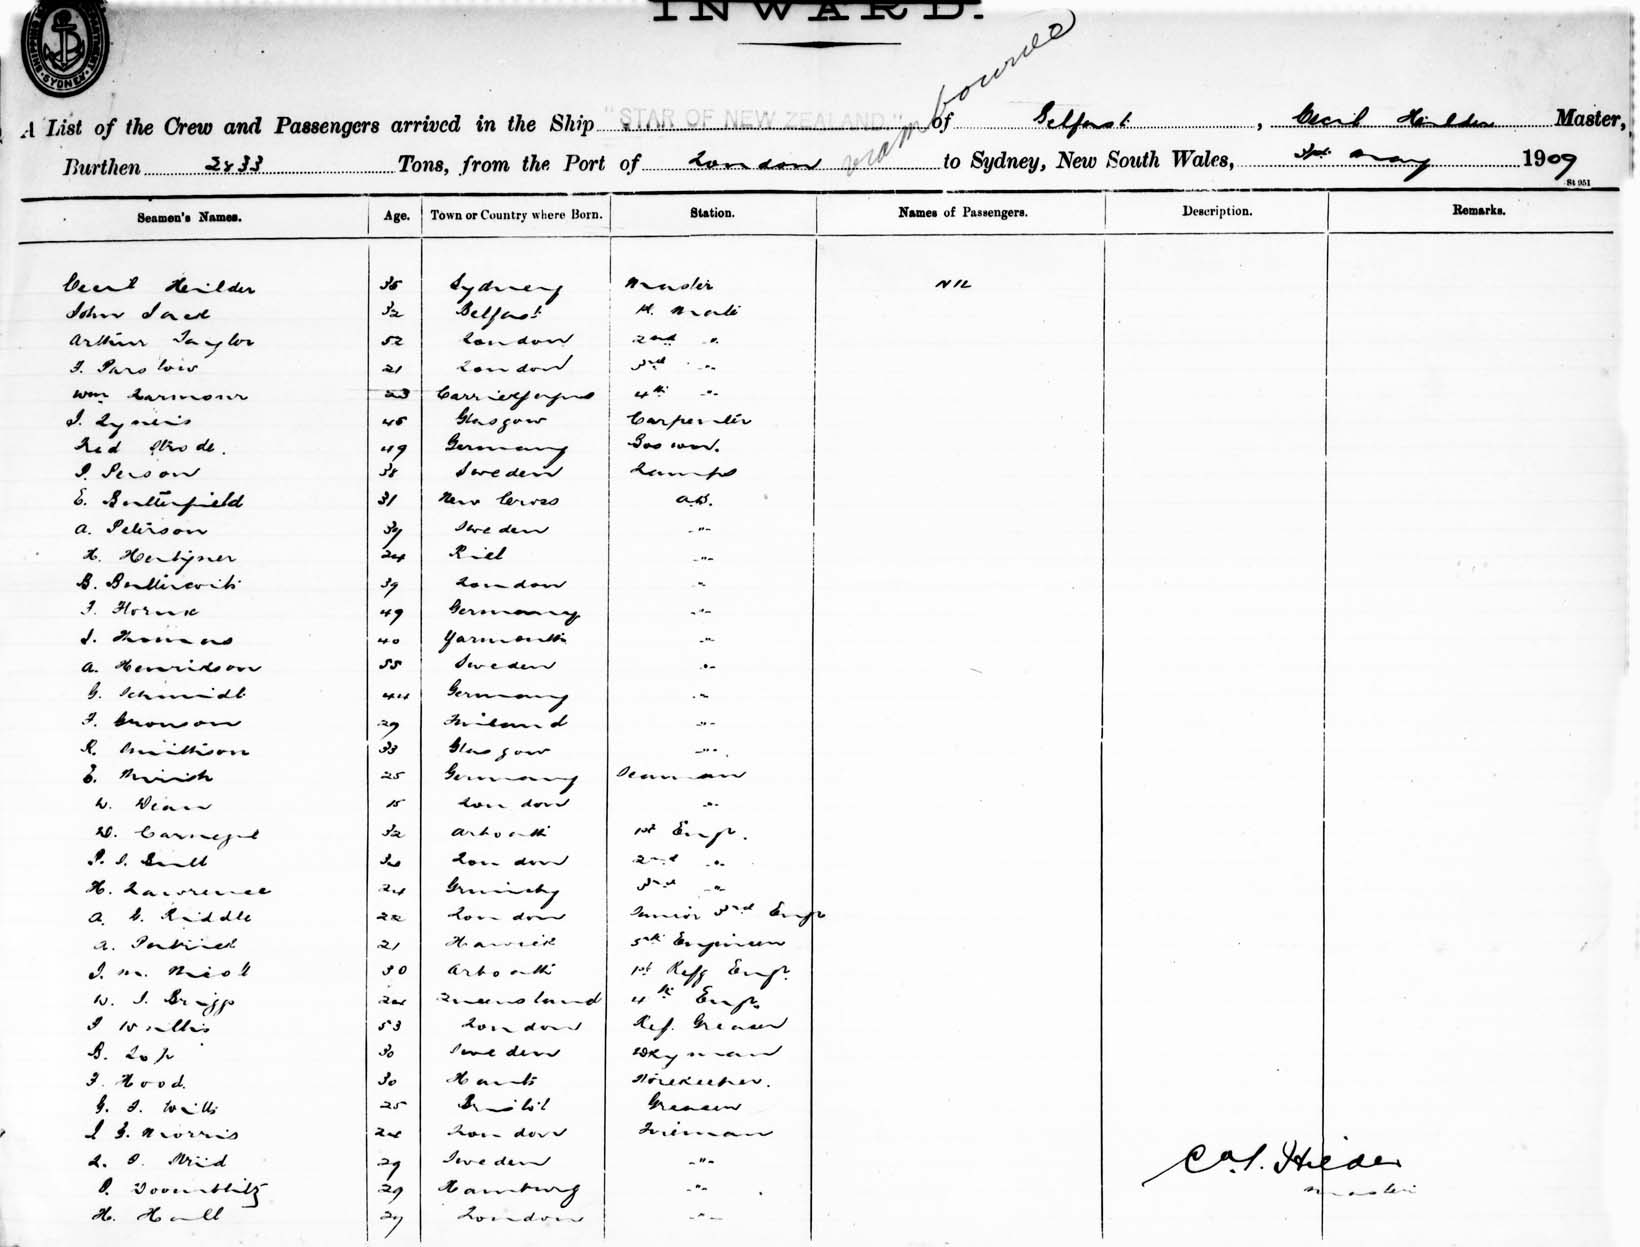 INWARD.
SHIPPING SYDNEY
bourne
A List of the Crew and Passengers arrived in the Ship "STAR OF NEW ZEALAND" of Belfast, Cecil Heilder Master,
Burthen 2833 Tons, from the Port of London to Sydney, New South Wales, May 1909
St 951
Seamen's Names. Age. Town or Country where Born. Station. Names of Passengers. Description. Remarks.
Cecil Heilder 35 Sydney Master Nil
John Jack 32 Belfast Mate
Arthur Taylor 52 London 2nd "
J. Parslow 21 London 3rd "
Wm Larmour 23 Carrickfergus 4th "
45 Glasgow Carpenter
Fred 49 Germany Boswn.
Person 38 Sweden Lamps
E. Butterfield 31 New Cross A.B.
A. Peterson 39 Sweden "
H. 24 Kiel "
B. 39 London "
49 Germany "
J. Thomas 40 Yarmouth "
A. Henrikson 55 Sweden "
G. Schmidt 44 Germany "
29 "
R. 33 Glasgow "
E. 25 Germany Seaman
W. Dean 15 London "
D. Carnegie 32 Arboath 1st Engr.
London 2nd "
H. Lawrence 24 Grimsby 3rd "
A. C. Riddle 22 London Junior 3rd Engr
A. 21 Hawick 5th Engineer
J. M. Nicoll 30 Arboath 1st Refg Engr.
W. J. Briggs 24 Queensland 4th Engr.
J Willis 53 London Ref. Greaser
B. 30 Sweden
F. Hood. 30 Hants Storekeeper.
G. J. Wills 25 Bristol Greaser
J G. Morris 24 London Fireman
29 Sweden "
29 Hamburg "
H. Hall 29 London "
C. A. S. Hilder
Master